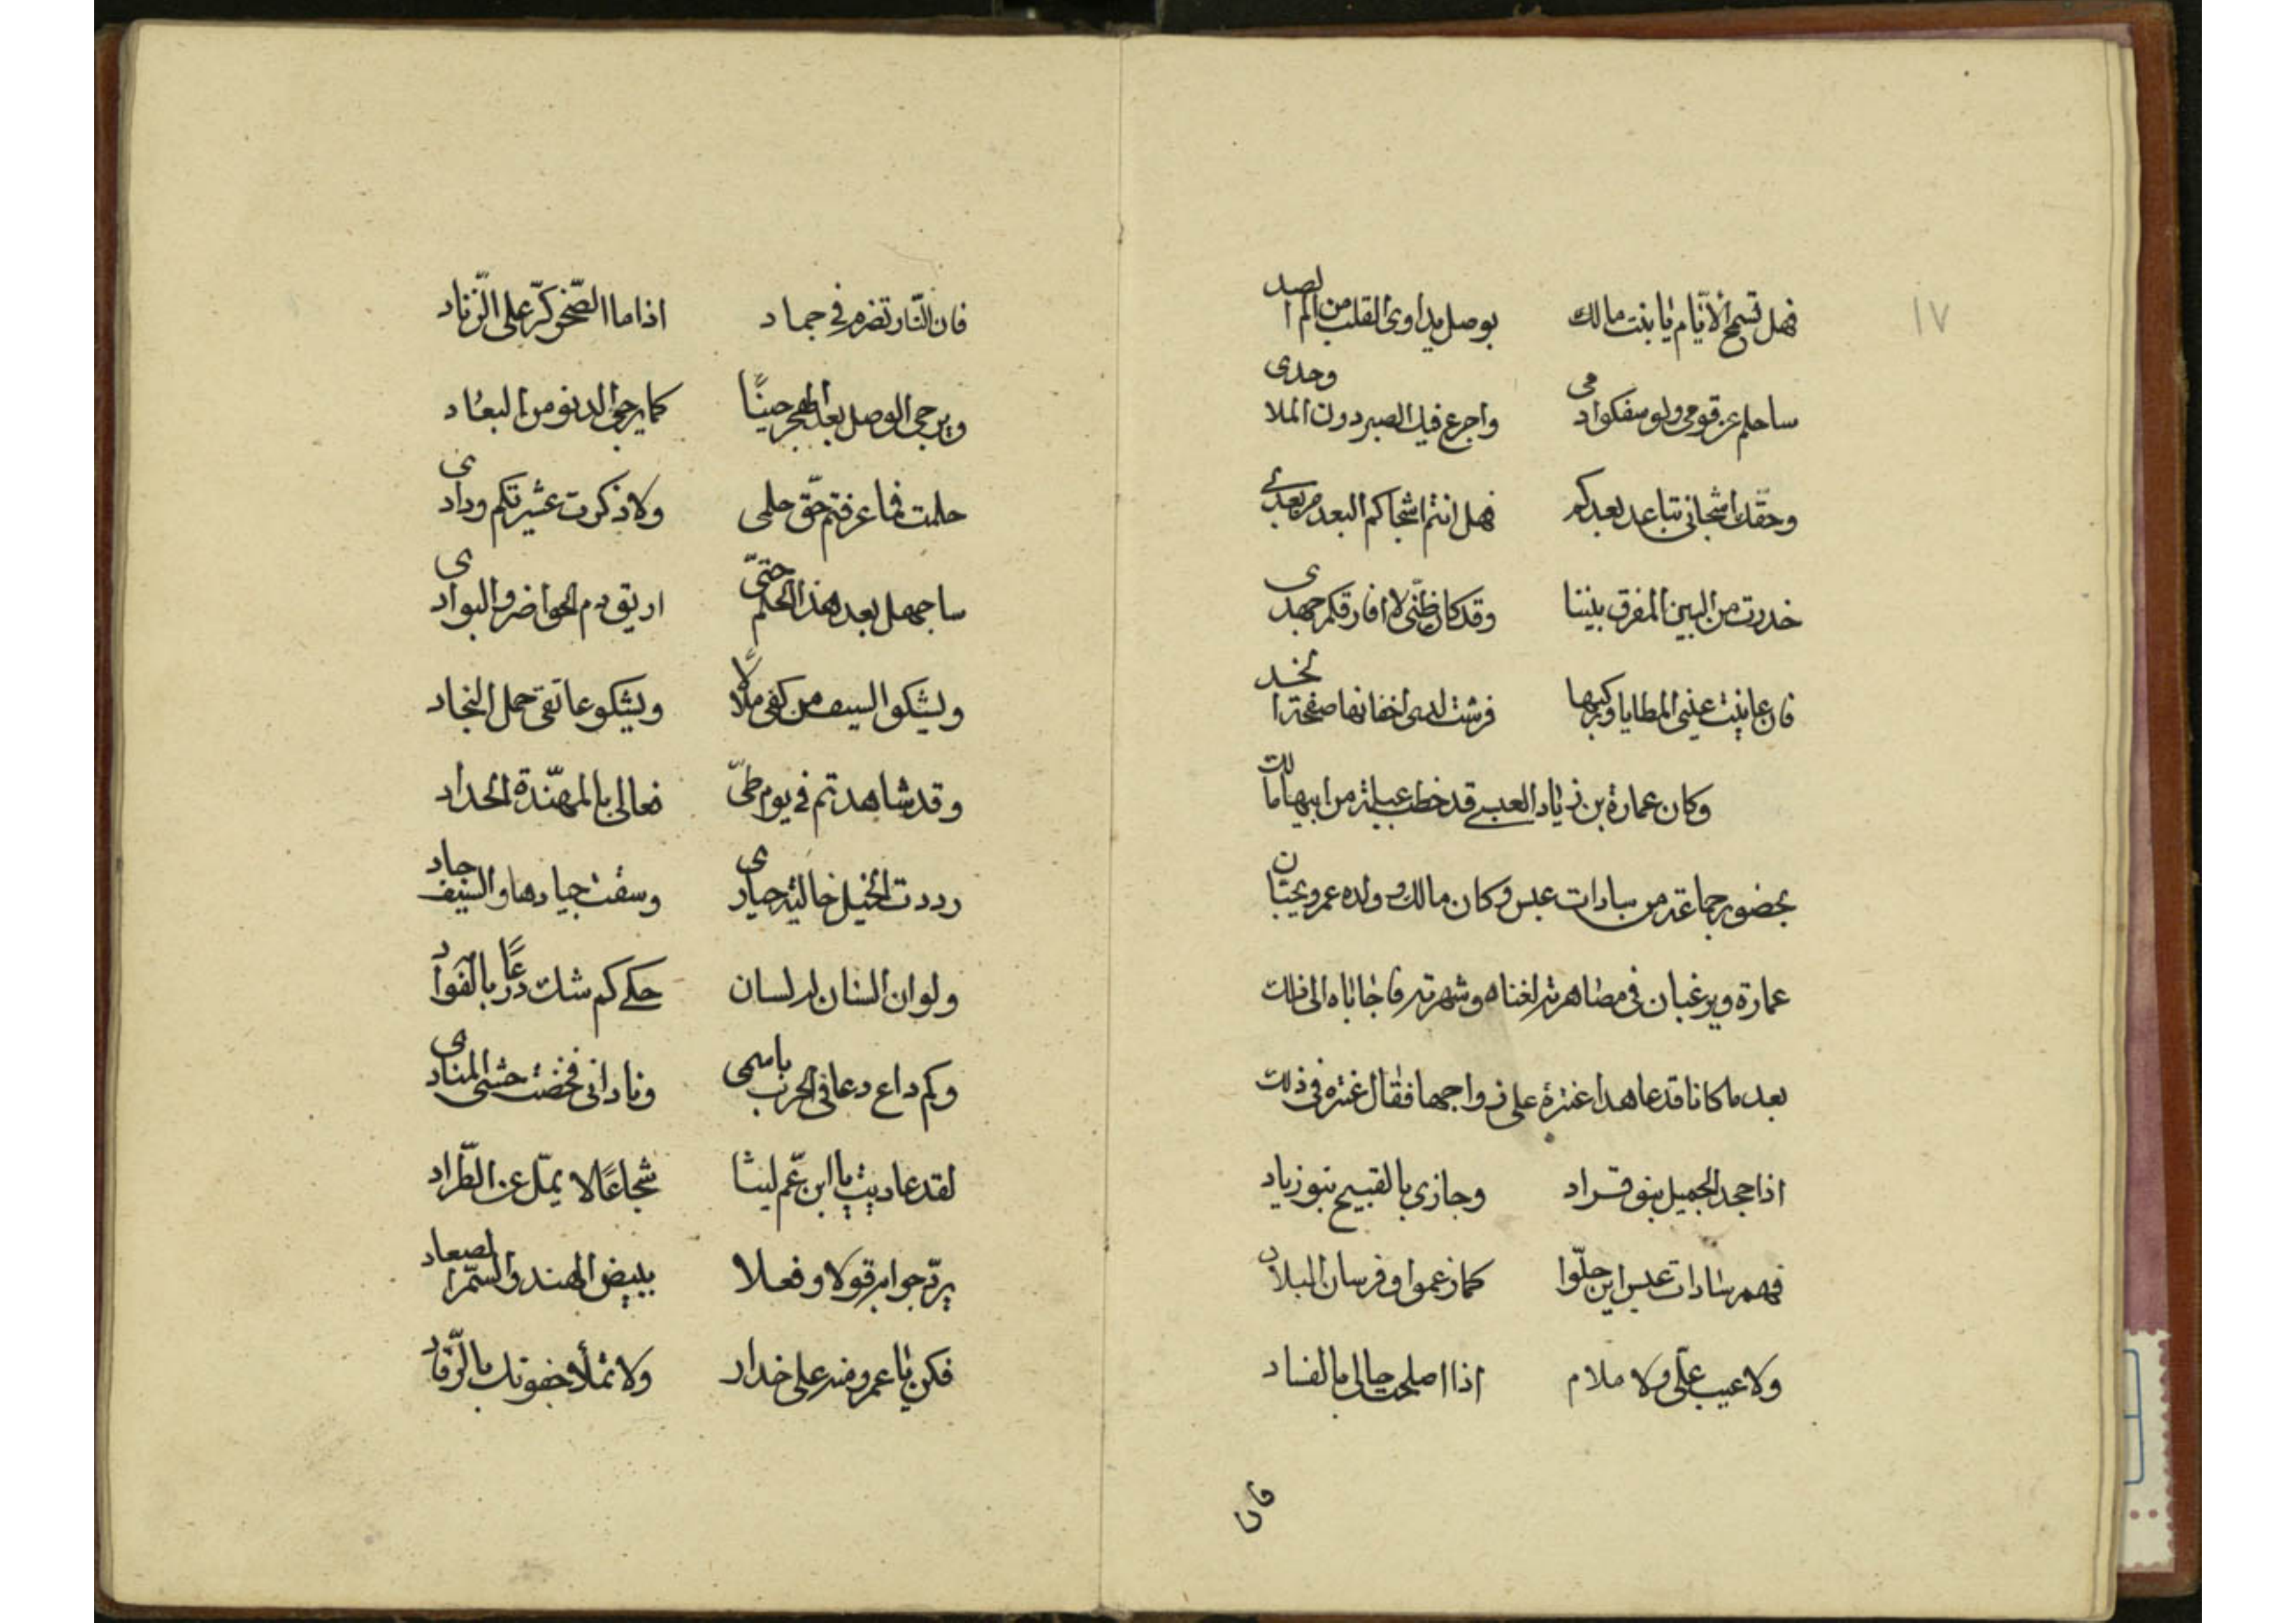 ١٧
فهل تسمح الأيّام يا بنت مالك بوصل يداوى القلب من الم الصد
ساحلم عن قومى ولو سفكوا دمى واجرع فيك الصبر دون الملا وحدى
وحقك اشجانى تباعد بعدكم فهل انتم اشجاكم البعد من بعدى
حذرت من البين المفرق بيننا وقد كان ظنّى لا افارقكم جهدى
فان عاينت عينى المطايا وركبها فرشت لدى اخفافها صفحة الخد
وكان عمارة بن زياد العبسى قد خطب عبلة من ابيها مالك
بحضور جماعة من سادات عبس وكان مالك وولده عمرو يحبّان
عمارة ويرغبان فى مصاهرته لغناه وشهرته فاجاباه الى ذلك
بعد ما كانا قد عاهدا عنترة على زواجها فقال عنتره فى ذلك
اذا جحد الجميل بنو قراد وجازى بالقبيح بنو زياد
فهم سادات عبس اين حلّوا كما زعموا وفرسان البلاد
ولا عيب علىّ ولا ملام اذا اصلحت حالى بالفساد
فان
فان النّار تضرم فى جماد اذا ما الصّخر كرّ على الزّناد
ويرجى الوصل بعد الهجر حينًا كما يرجى الدنو من البعاد
حلمت فما عرفتم حقّ حلمى ولا ذكرت عشيرتكم ودادى
ساجهل بعد هذا الحلم حتىّ اريق دم الحواضر والبوادى
ويشكو السيف من كفى ملالًا ويشكو عاتقى حمل النجاد
وقد شاهدتم فى يوم طىّ فعالى بالمهنّدة الحداد
رددت الخيل خالية حيارى وسقت جيادها والسيف حاد
ولو ان السنان له لسان حكى كم شك درعًا بالفواد
وكم داع دعا فى الحرب باسمى ونادانى فخضت حشى المنادى
لقد عاديت يا ابن عّم ليثا شجاعًا لا يملّ عن الطّراد
يردّ جوابه قولا وفعلا ببيض الهند والسّمر الصعاد
فكن يا عمرو منه على حذار ولا تملأ جفونك بالرّقاد